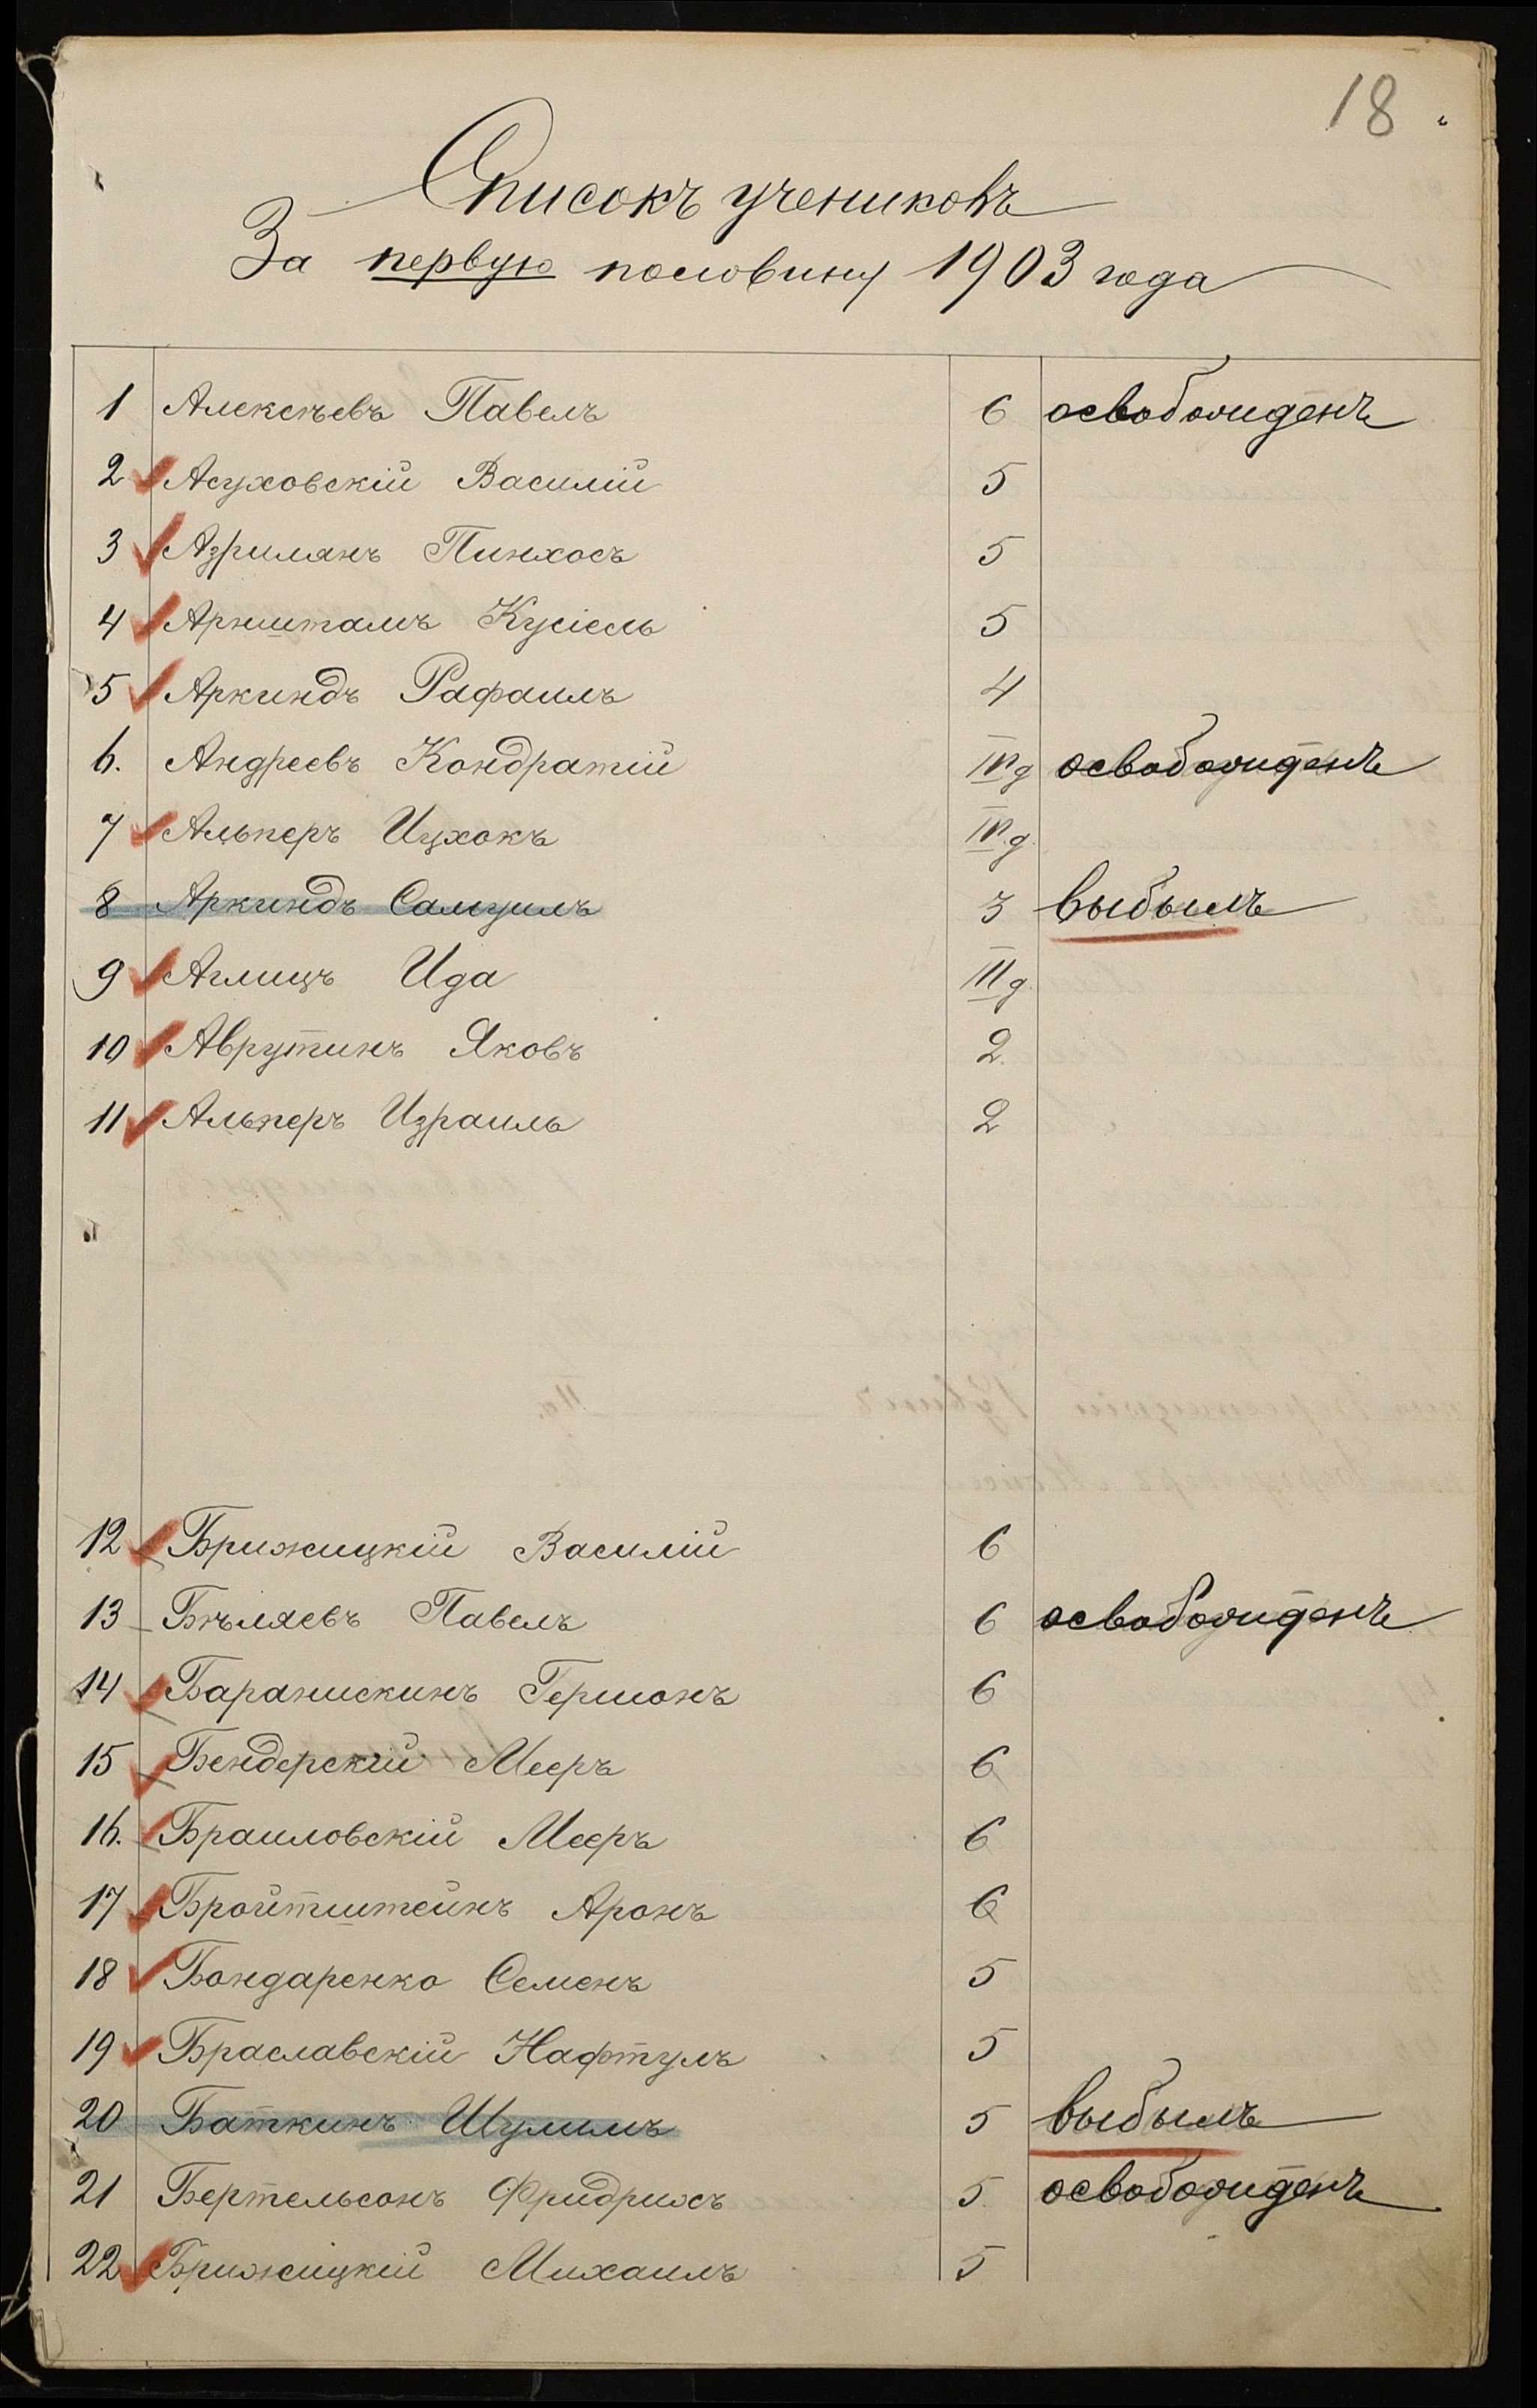 18.
Списокъ учениковъ
За первую половину 1903 года
1 Алексѣевъ Павелъ 6 освобожденъ
2 Асуховскій Василій 5
3 Азрилянъ Пинхосъ 5
4 Арнштамъ Кусіель 5
5 Аркиндъ Рафаилъ 4
6. Андреевъ Кондратій IVд освобожденъ
7 Альперъ Ицхокъ IV.д.
8 Аркиндъ Самуилъ 3 выбылъ
9 Аглицъ Ида IIIд.
10 Аврутинъ Яковъ 2.
11 Альперъ Израиль 2
12 Брижицкій Василій 6
13 Бѣляевъ Павелъ 6 освобожденъ
14 Баранискинъ Гершонъ 6
15 Бендерскій Мееръ 6
16. Браиловскій Мееръ 6
17 Бройтштейнъ Аронъ 6
18 Бондаренко Семенъ 5
19 Браславскій Нафтулъ 5
20 Баткинъ Шулимъ 5 выбылъ
21 Бертельсонъ Фридрихъ 5. освобожденъ
22 Брижицкій Михаилъ 5